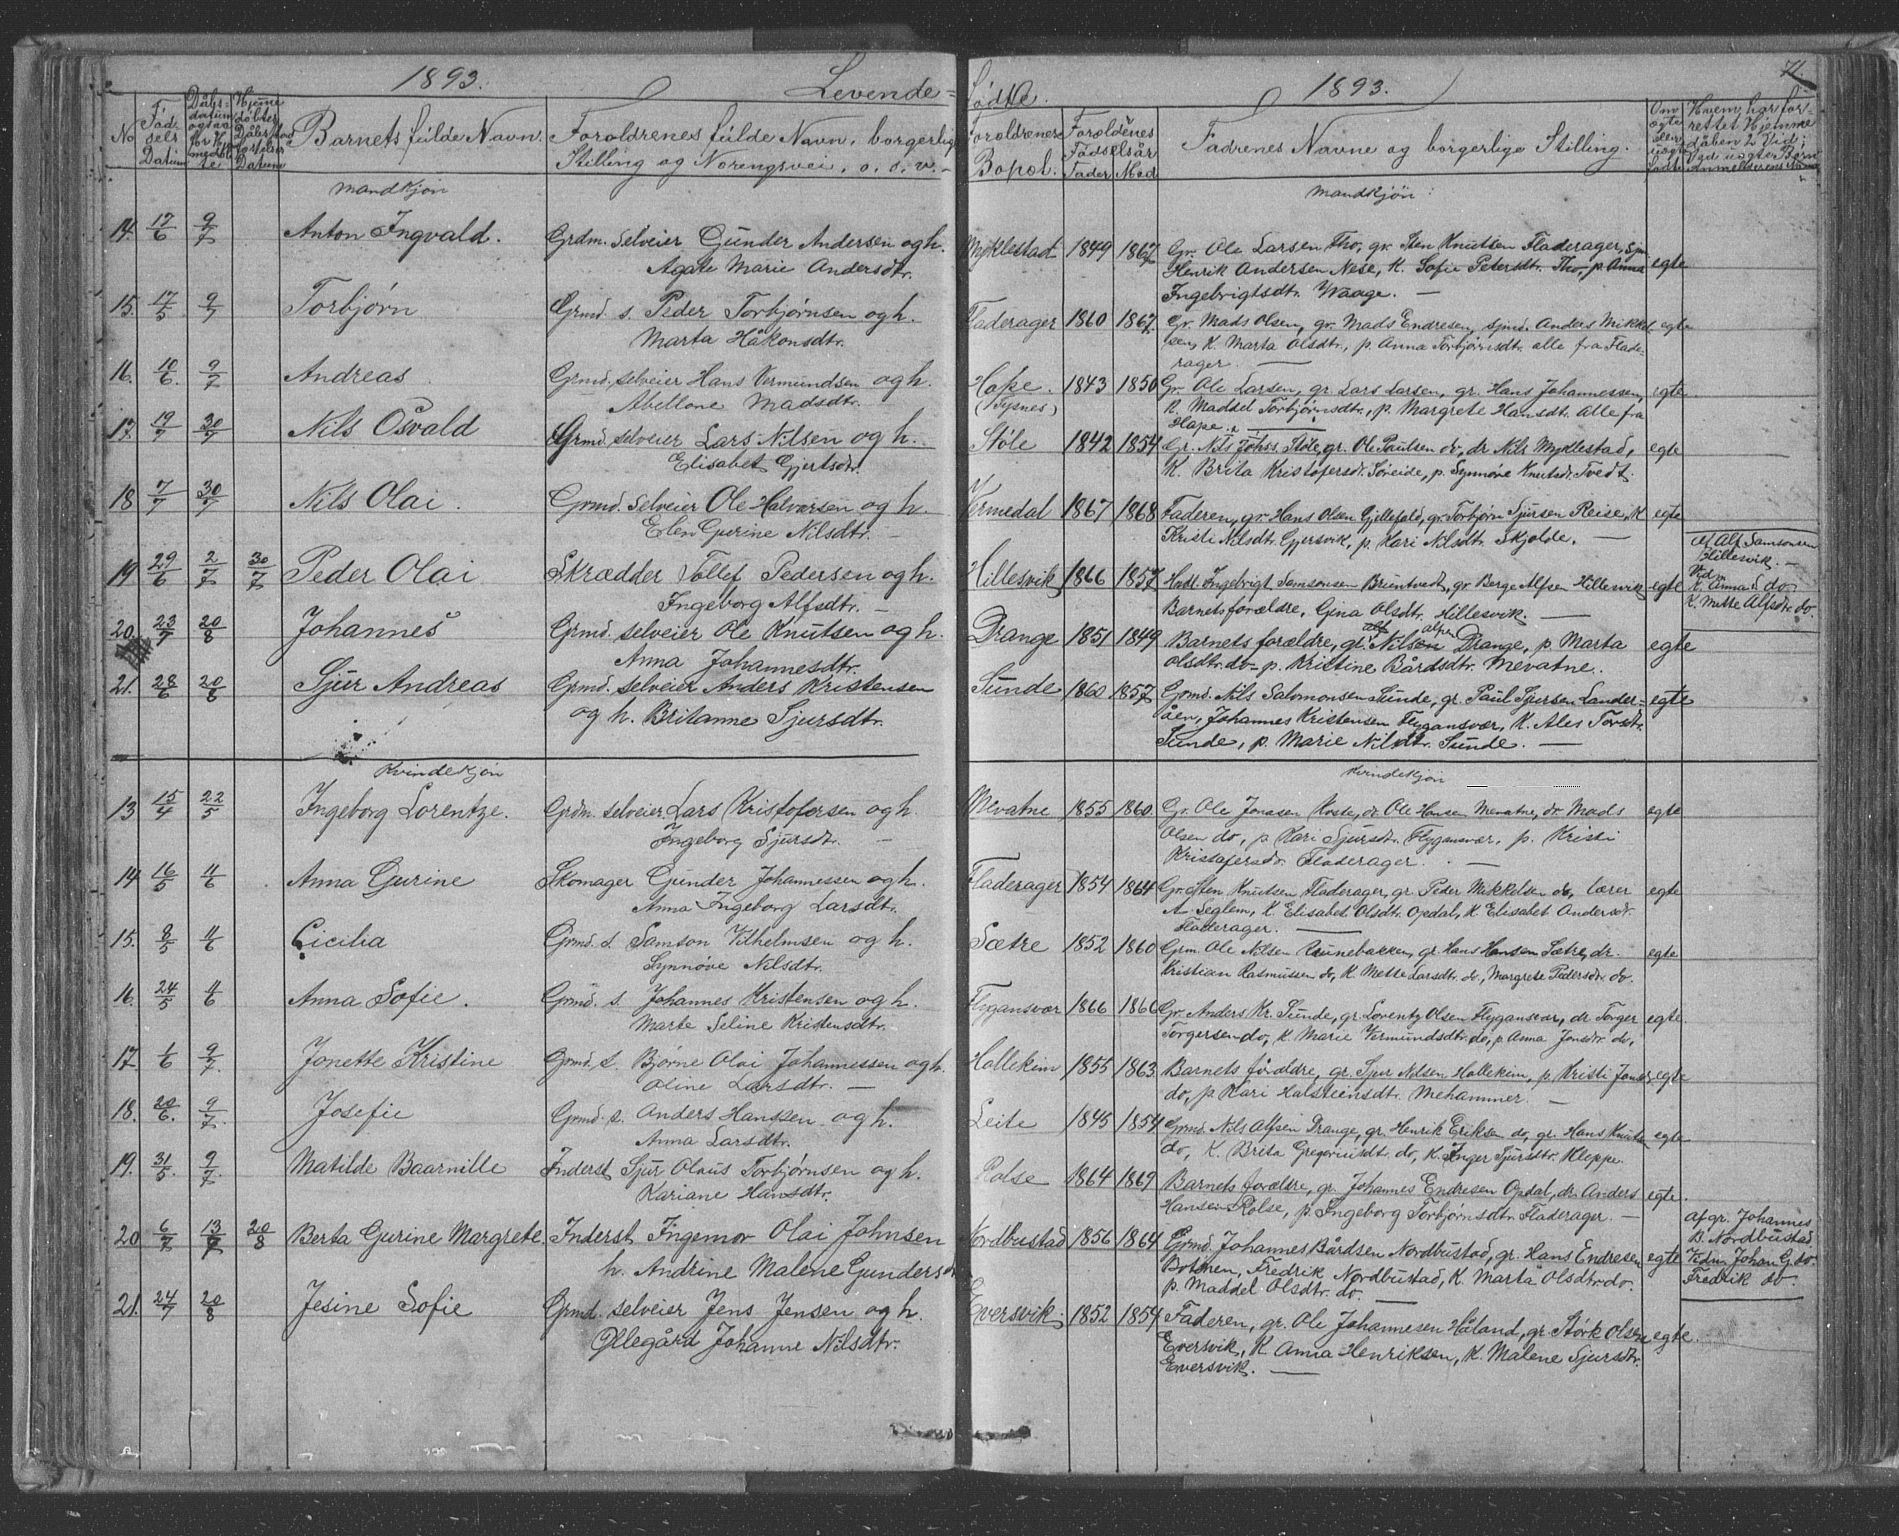 1893. Levende=
No Fød-sels Datum Dåbs-datum Hjemme døbtes Barnets fulde Navn. Forældrenes fulde Navn, borgerlig Stilling og Næringsvei, o. s. v.
Mandkjøn
14. 17/6 9/7 Anton Ingvald. Grdm. Selveier Gunder Andersen og h.
Agate Marie Andersdtr.
15. 17/5 9/7 Torbjørn Grmd. s. Peder Torbjørnsen og h.
Marta Håkonsdtr.
16. 10/6. 9/7 Andreas Grmd. selveier Hans Vermundsen og h.
Abellone Madsdtr.
17. 19/7 30/7 Nils Osvald Grmd. selveier Lars Nilsen og h.
Elisabet Gjertsdr.
18 7/7 30/7 Nils Olai. Grmd. Selveier Ole Halvarsen og h.
Elen Gurine Nilsdtr.
19 29/6 2/7 30/7 Peder Olai Skrædder Tollef Pedersen og h.
Ingeborg Alfsdtr.
20. 23/7 20/8 Johannes Grmd. selveier Ole Knutsen og h.
Anna Johannesdtr.
21. 28/6 20/8 Sjur Andreas Grmd. selveier Anders Kristensen
og h. Britanne Sjursdtr.
Kvindekjøn
13 15/4 22/5 Ingeborg Lorentze. Grdm. selveier Lars Kristofersen og h.
Ingeborg Sjursdt.
14 16/5 11/6 Anna Gurine Skomager Gunder Johannessen og h.
Anna Ingeborg Larsdtr.
15. 8/5 11/6 Cicilia Grmd. s. Samson Vilhelmsen og h.
Synnøve Nilsdtr.
16. 24/5 11/6 Anna Sofie. Grmd. s. Johannes Kristensen og h.
Marte Seline Kristensdtr.
17. 1/6 9/7. Jonette Kristine Grmd. s. Bjørne Olai Johannessen og h.
Oline Larsdtr.
18. 20/6. 9/7. Josefie Grmd. s. Anders Hanssen og h.
Anna Larsdtr.
19. 31/5. 9/7. Matilde Baarnille Inderst Sjur Olaus Torbjørnsen og h.
Kariane Hansdtr.
20 6/7 13/7 20/8 Berta Gurine Margrete. Inderst Ingemor Olai Johnsen
h. Andrine Malene Gundersd
21. 24/7 20/8 Jesine Sofie Grmd. selveier Jens Jensen og h.
Ollegård Johanne Nilsdtr.
Fødte. 1893. 71
Forældrenes Bopæl. Forældrenes Fødselsår Fader Mod Fadrenes Navne og borgerlige Stilling. Om ægte eller uægte fødte
Mandkjøn
Myklestad 1849 1867 Gr. Ole Larsen Tho, gr. Sten Knutsen Fladerager,
Henrik Andersen Nese, K. Sofie Petersdtr. Tho, p. Anna egte
Ingebrigtsdtr. Waage.
Fladerager 1860 1867 Gr. Mads Olsen, gr. Mads Endresen, Anders Mikkel egte
sen, K. Marta Olsdtr, p. Anna Torbjørnsdtr. alle fra Flade-
rager.
Hope. 1843 1850 Gr. Ole Larsen, gr. Lars Larsen, gr. Hans Johannessen, egte
(Tysnes) K. Maddel Torbjørnsdtr, p. Margrete Hansdtr. Alle fra
Hope.
Støle 1842 1854 Gr. Nils Johs. Støle, gr. Ole Paulsen do, dr Nils Myklestad, egte
K. Brita Kristofersdr. Søreide, p. Synnøve Knutsdr. Tvedt.
Vermedal 1867 1868 Faderen, gr. Hans Olsen Gjellefald, gr. Torbjørn Sjursen Reise, K egte
Kristi Nilsdtr. Gjersvik, p. Kari Nilsdtr. Skjolde.
Hillesvik 1866 1857 Ingebrigt Samsonsen Bruntvedt, gr Berge Alfsen Hillesvik egte
Barnets forældre, Gina Olsdtr. Hillesvik.
Af Alf Samsonsen
Hillesvik.
K. Anna do
K. Mette Alfsdtr do.
Drange 1851 1849 Barnets forældre, gr. Nilsen Drange, p. Marta egte
Olsdtr. do p. Kristine Bårdsdtr. Mevatne.
Sunde 1860 1857 Grmd. Nils Salomonsen Sunde, gr. Paul Sjursen Lander- egte
åen, Johannes Kristensen Flygansvær, K. Ales Torsdtr.
Sunde, p. Marie Nilsdtr. Sunde.
Kvindekjøn
Mevatne 1855 1860. Gr. Ole Jonasen Koste, dr Ole Hansen Mevatne, dr. Mads egte
Olsen do, p Kari Sjursdtr. Flygansvær, p. Kristi
Kristofersdr. Fladerager.
Fladerager 1854 1864 Gr. Sten Knutsen Fladerager, gr Peder Mikkelsen do, lærer egte
A. Seglem, K. Elisabet Olsdtr Opdal, K. Elisabet Andersdr.
Fladerager.
Sætre 1852 1860 Grm. Ole Nilsen Raunebakken, gr Hans Hansen Sætre, dr. egte
Kristian Rasmussen do, K. Mette Larsdt. do, Margrete Pedersdr do.
Flygansvær 1866 1866 Gr. Anders Kr. Sunde, gr. Lorentz Olsen Flygansvær, dr Torger egte.
Torgersen do, K. Marie Vermundsdtr. do, p. Anna Jonsdr do.
Hollekim 1855 1863. Barnets forældre, gr. Sjur Nilsen Hollekim, p. Kristi Jonsd. egte
do, p. Kari Halsteinsdt. Mehammer.
Leite 1845 1854 Grmd. Nils Alfsen Drange, gr. Henrik Eriksen do, gr. Hans Knuts egte
do, K. Brita Gregoriusdt do, K. Inger Sjursdtr. Kleppe.
Rolse 1864 1869 Barnets forældre, gr. Johannes Endresen Opdal, dr. Anders egte.
Hansen Rolse, p. Ingeborg Torbjørnsdtr. Fladerager.
Nordbustad 1856 1864 Grmd. Johannes Bårdsen Nordbustad, gr. Hans Endresen egte
Botnen, Fredrik Nordbustad, K. Marta Olsdtr do.
p. Maddel Olsdtr. do.
Af gr. Johannes
B. Nordbustad
Vidn. Johan G. do.
Fredrik do
Eversvik. 1852 1854 Faderen, gr. Ole Johannesen Håland, gr. Størk Olsen egte.
Eversvik, K. Anna Henriksen, K. Malene Sjursdtr.
Eversvik.